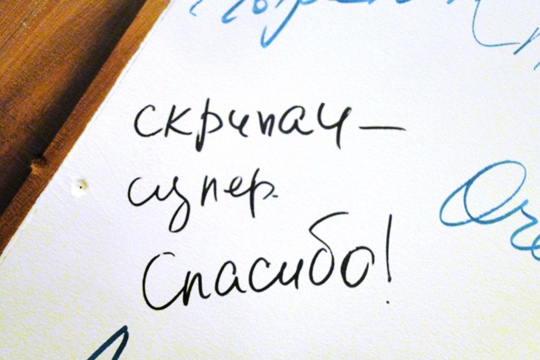 скрипач —
супер.
Спасибо!